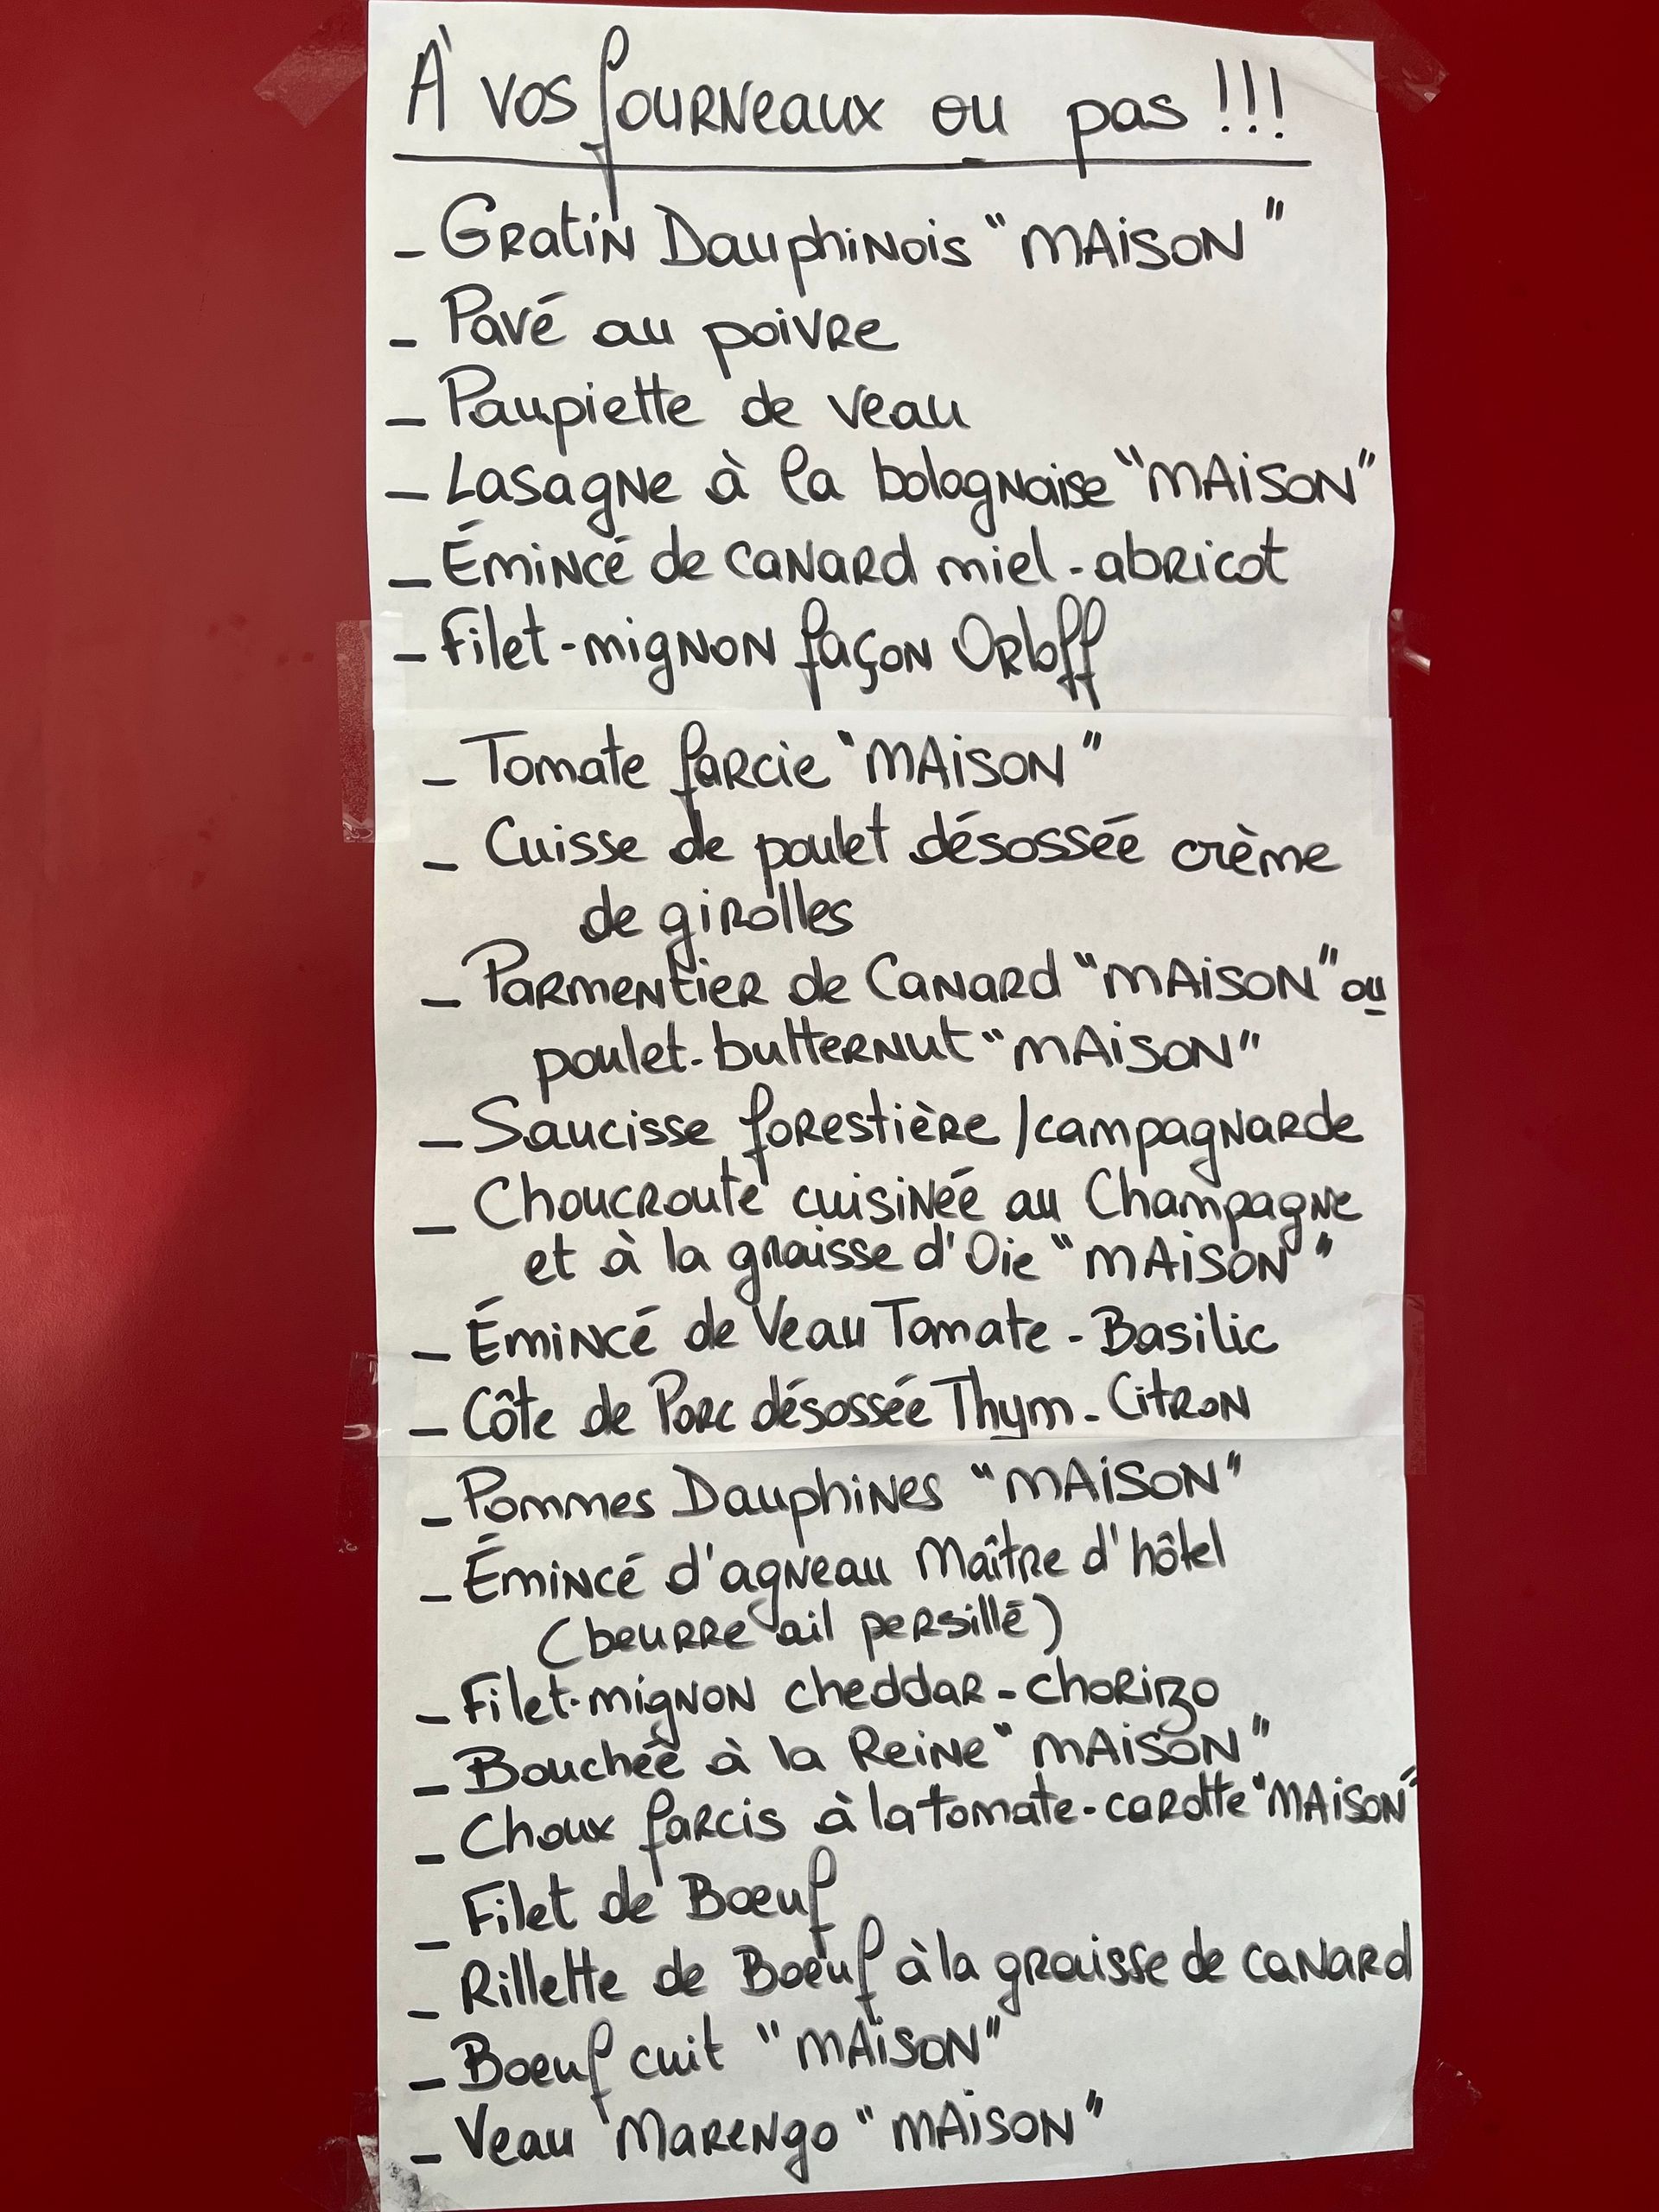 À vos fourneaux ou pas !!!
- Gratin Dauphinois "MAISON"
- Pavé au poivre
- Paupiette de veau
- Lasagne à la bolognaise "MAISON"
- Émincé de canard miel-abricot
- Filet-mignon façon Orloff
- Tomate farcie "MAISON"
- Cuisse de poulet désossée crème
de girolles
- Parmentier de Canard "MAISON" ou
poulet-butternut "MAISON"
- Saucisse forestière / campagnarde
- Choucroute cuisinée au Champagne
et à la graisse d'Oie "MAISON"
- Émincé de Veau Tomate - Basilic
- Côte de Porc désossée Thym - Citron
- Pommes Dauphines "MAISON"
- Émincé d'agneau Maître d'hôtel
(beurre ail persillé)
- Filet-mignon cheddar - chorizo
- Bouchée à la Reine "MAISON"
- Choux farcis à la tomate-carotte "MAISON"
- Filet de Bœuf
- Rillette de Bœuf à la graisse de canard
- Bœuf cuit "MAISON"
- Veau Marengo "MAISON"